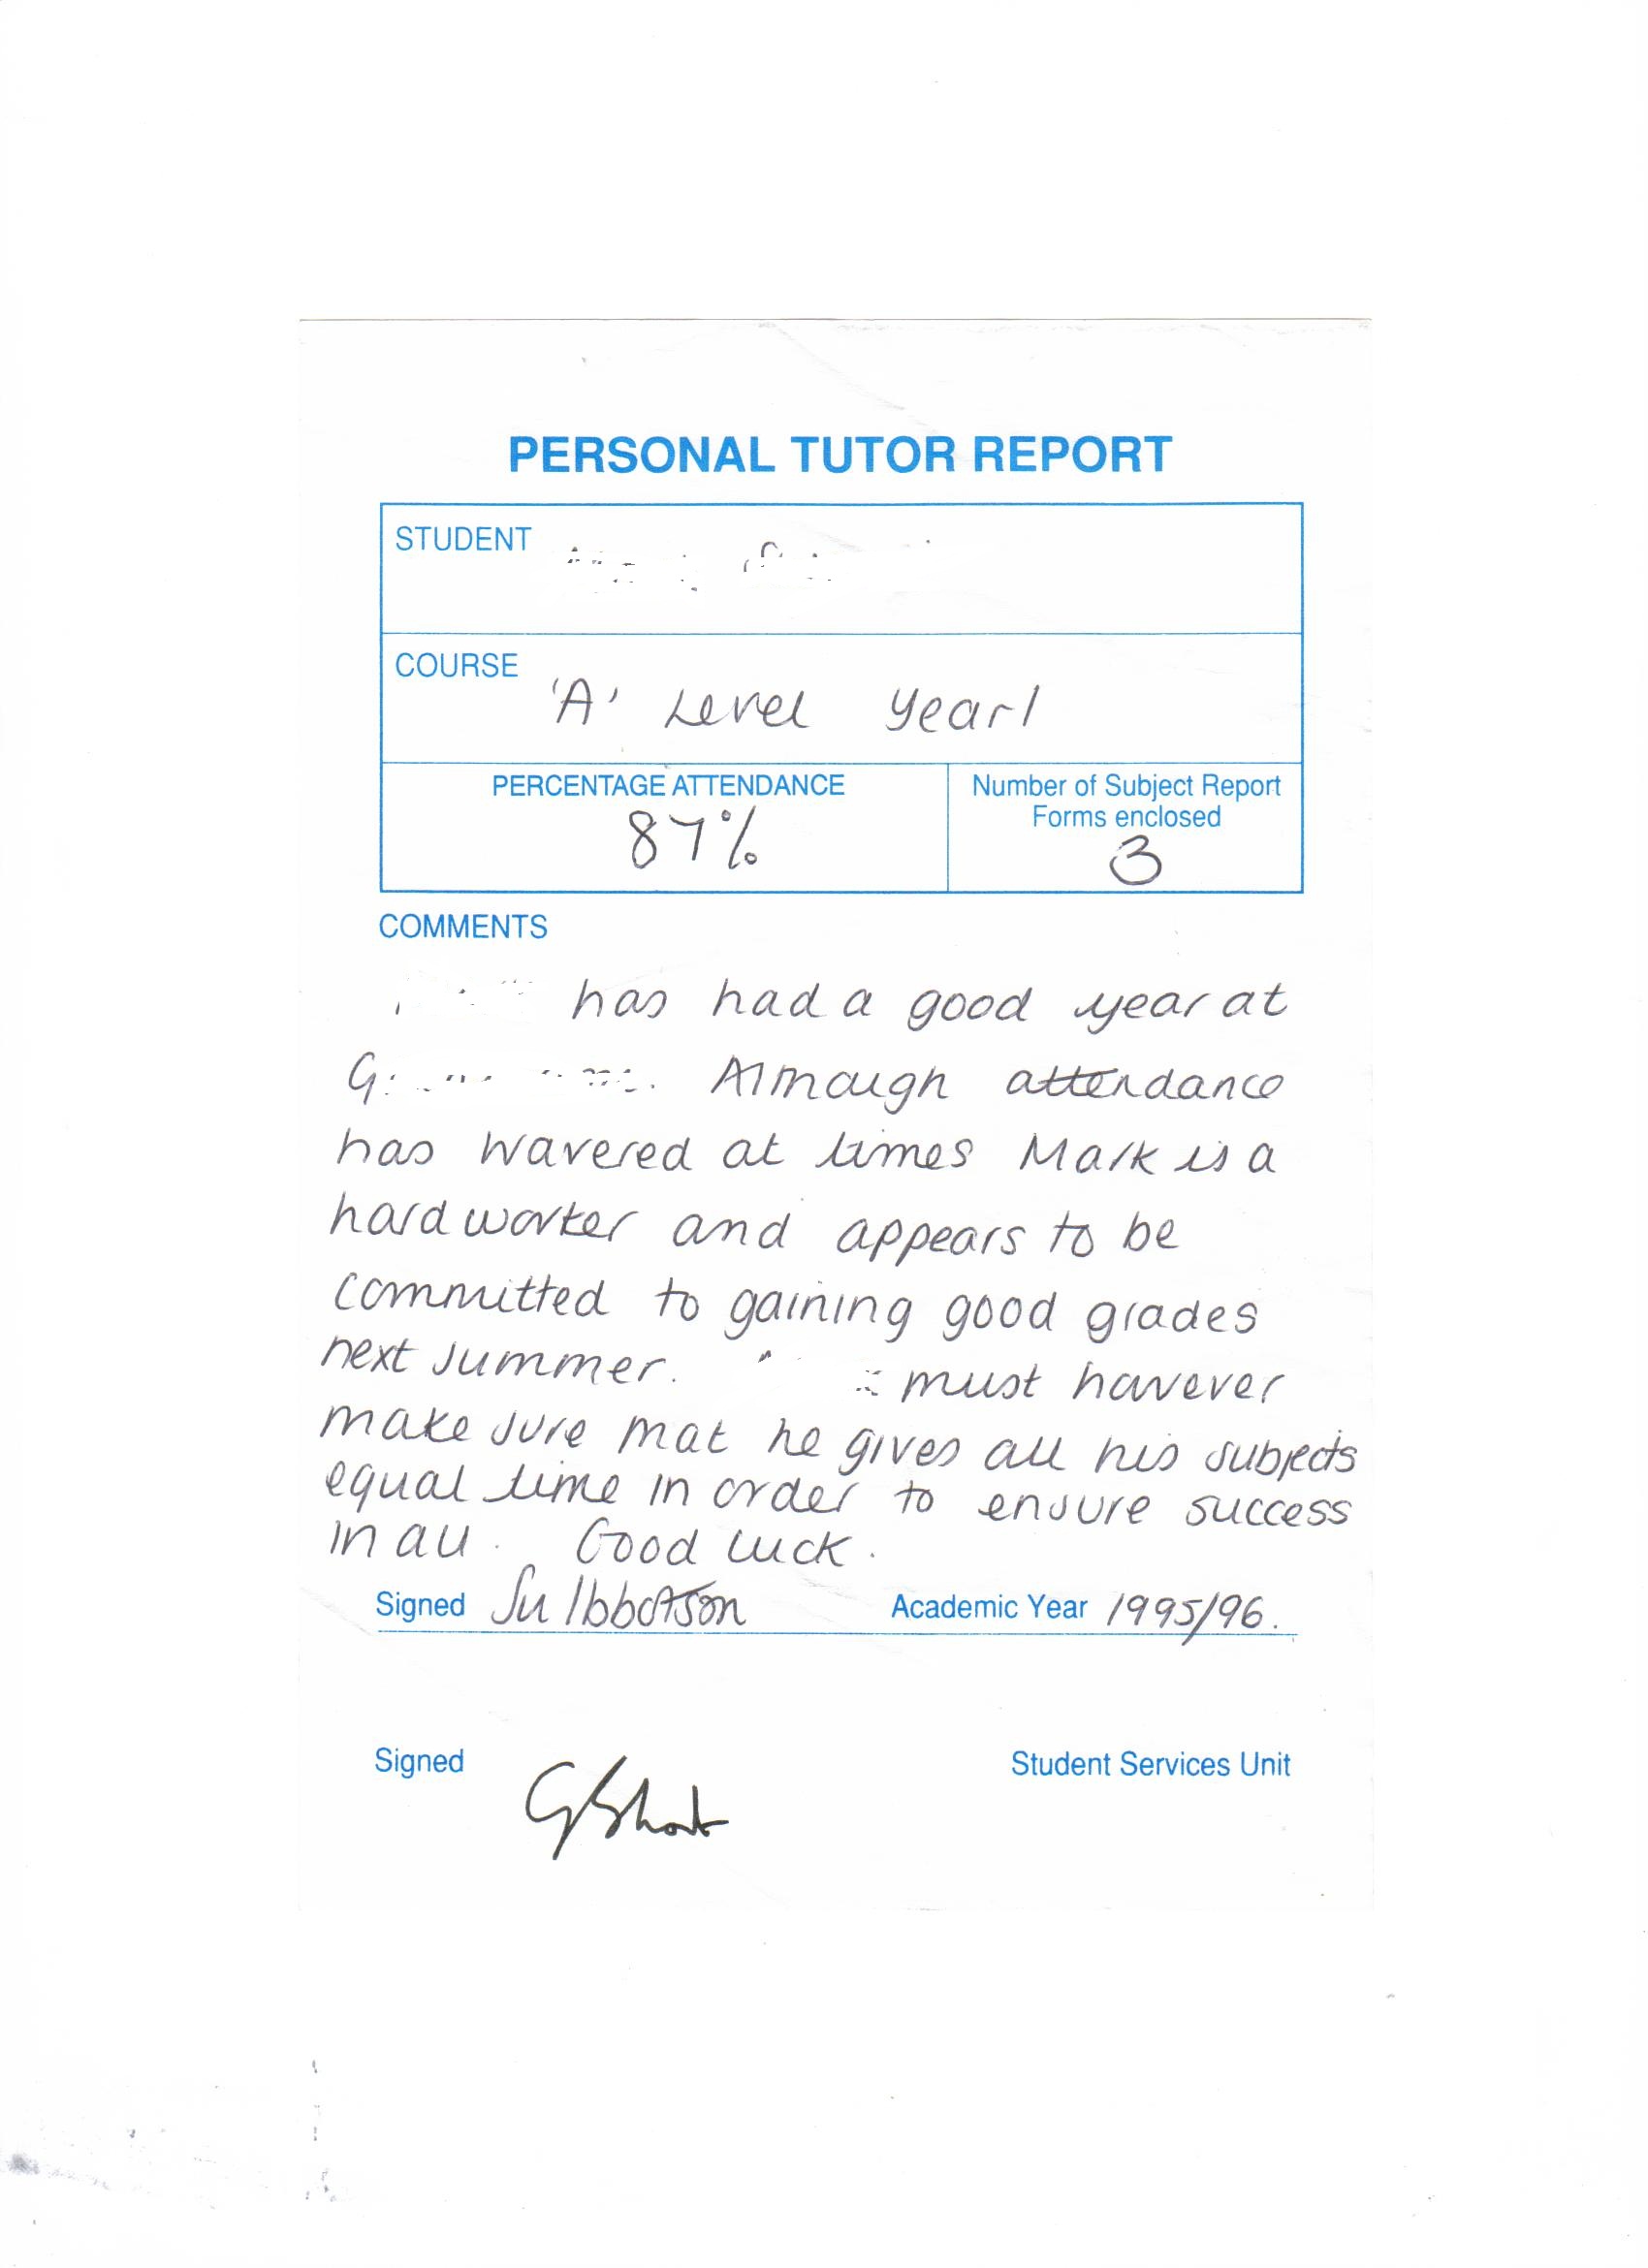 PERSONAL TUTOR REPORT
STUDENT
COURSE
'A' Level Year 1
PERCENTAGE ATTENDANCE
87%
Number of Subject Report
Forms enclosed
3
COMMENTS
has had a good year at
Although attendance
has wavered at times Mark is a
hard worker and appears to be
committed to gaining good grades
next summer. must however
make sure that he gives all his subjects
equal time in order to ensure success
in all. Good luck.
Signed Su Ibbotson Academic Year 1995/96.
Signed G Short Student Services Unit